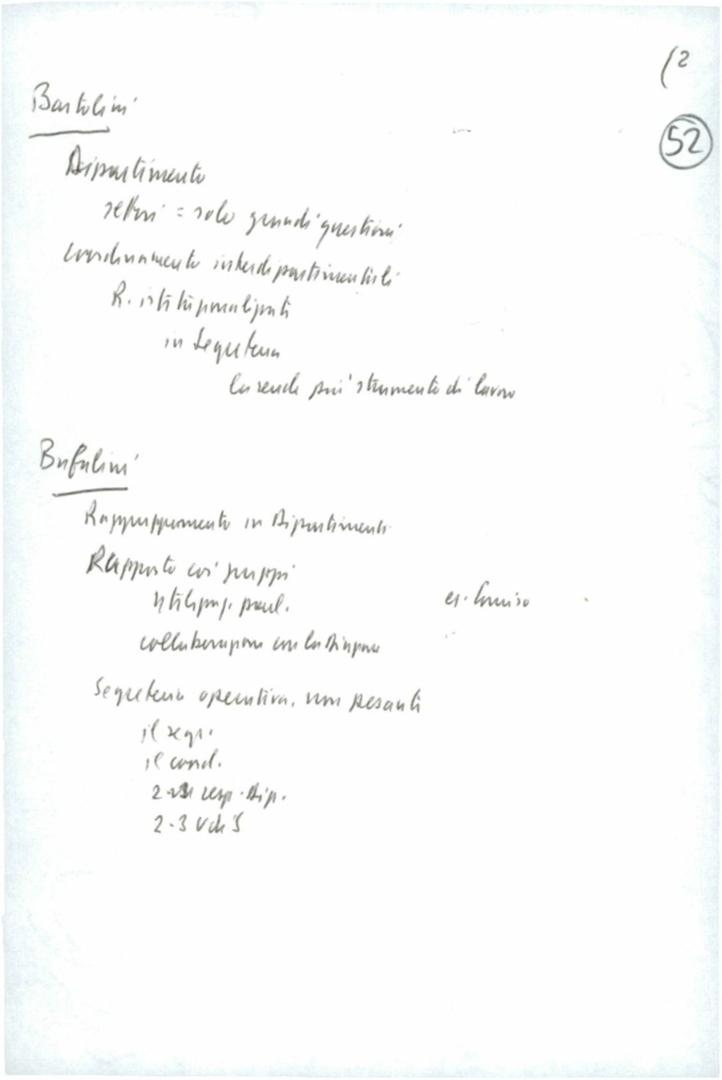 (2
52
Bartolini
Dipartimento
settori = solo grandi questioni
coordinamento interdipartimentali
R. istituzionalizzati
in Segreteria
la rende più strumento di lavoro
Bufalini
Raggruppamento in Dipartimenti
Rapporto coi gruppi
es. Comiso
collaborazione con la
Segreteria operativa, non pesanti
il segr.
il coord.
2 resp. Dip.
2-3 V di S